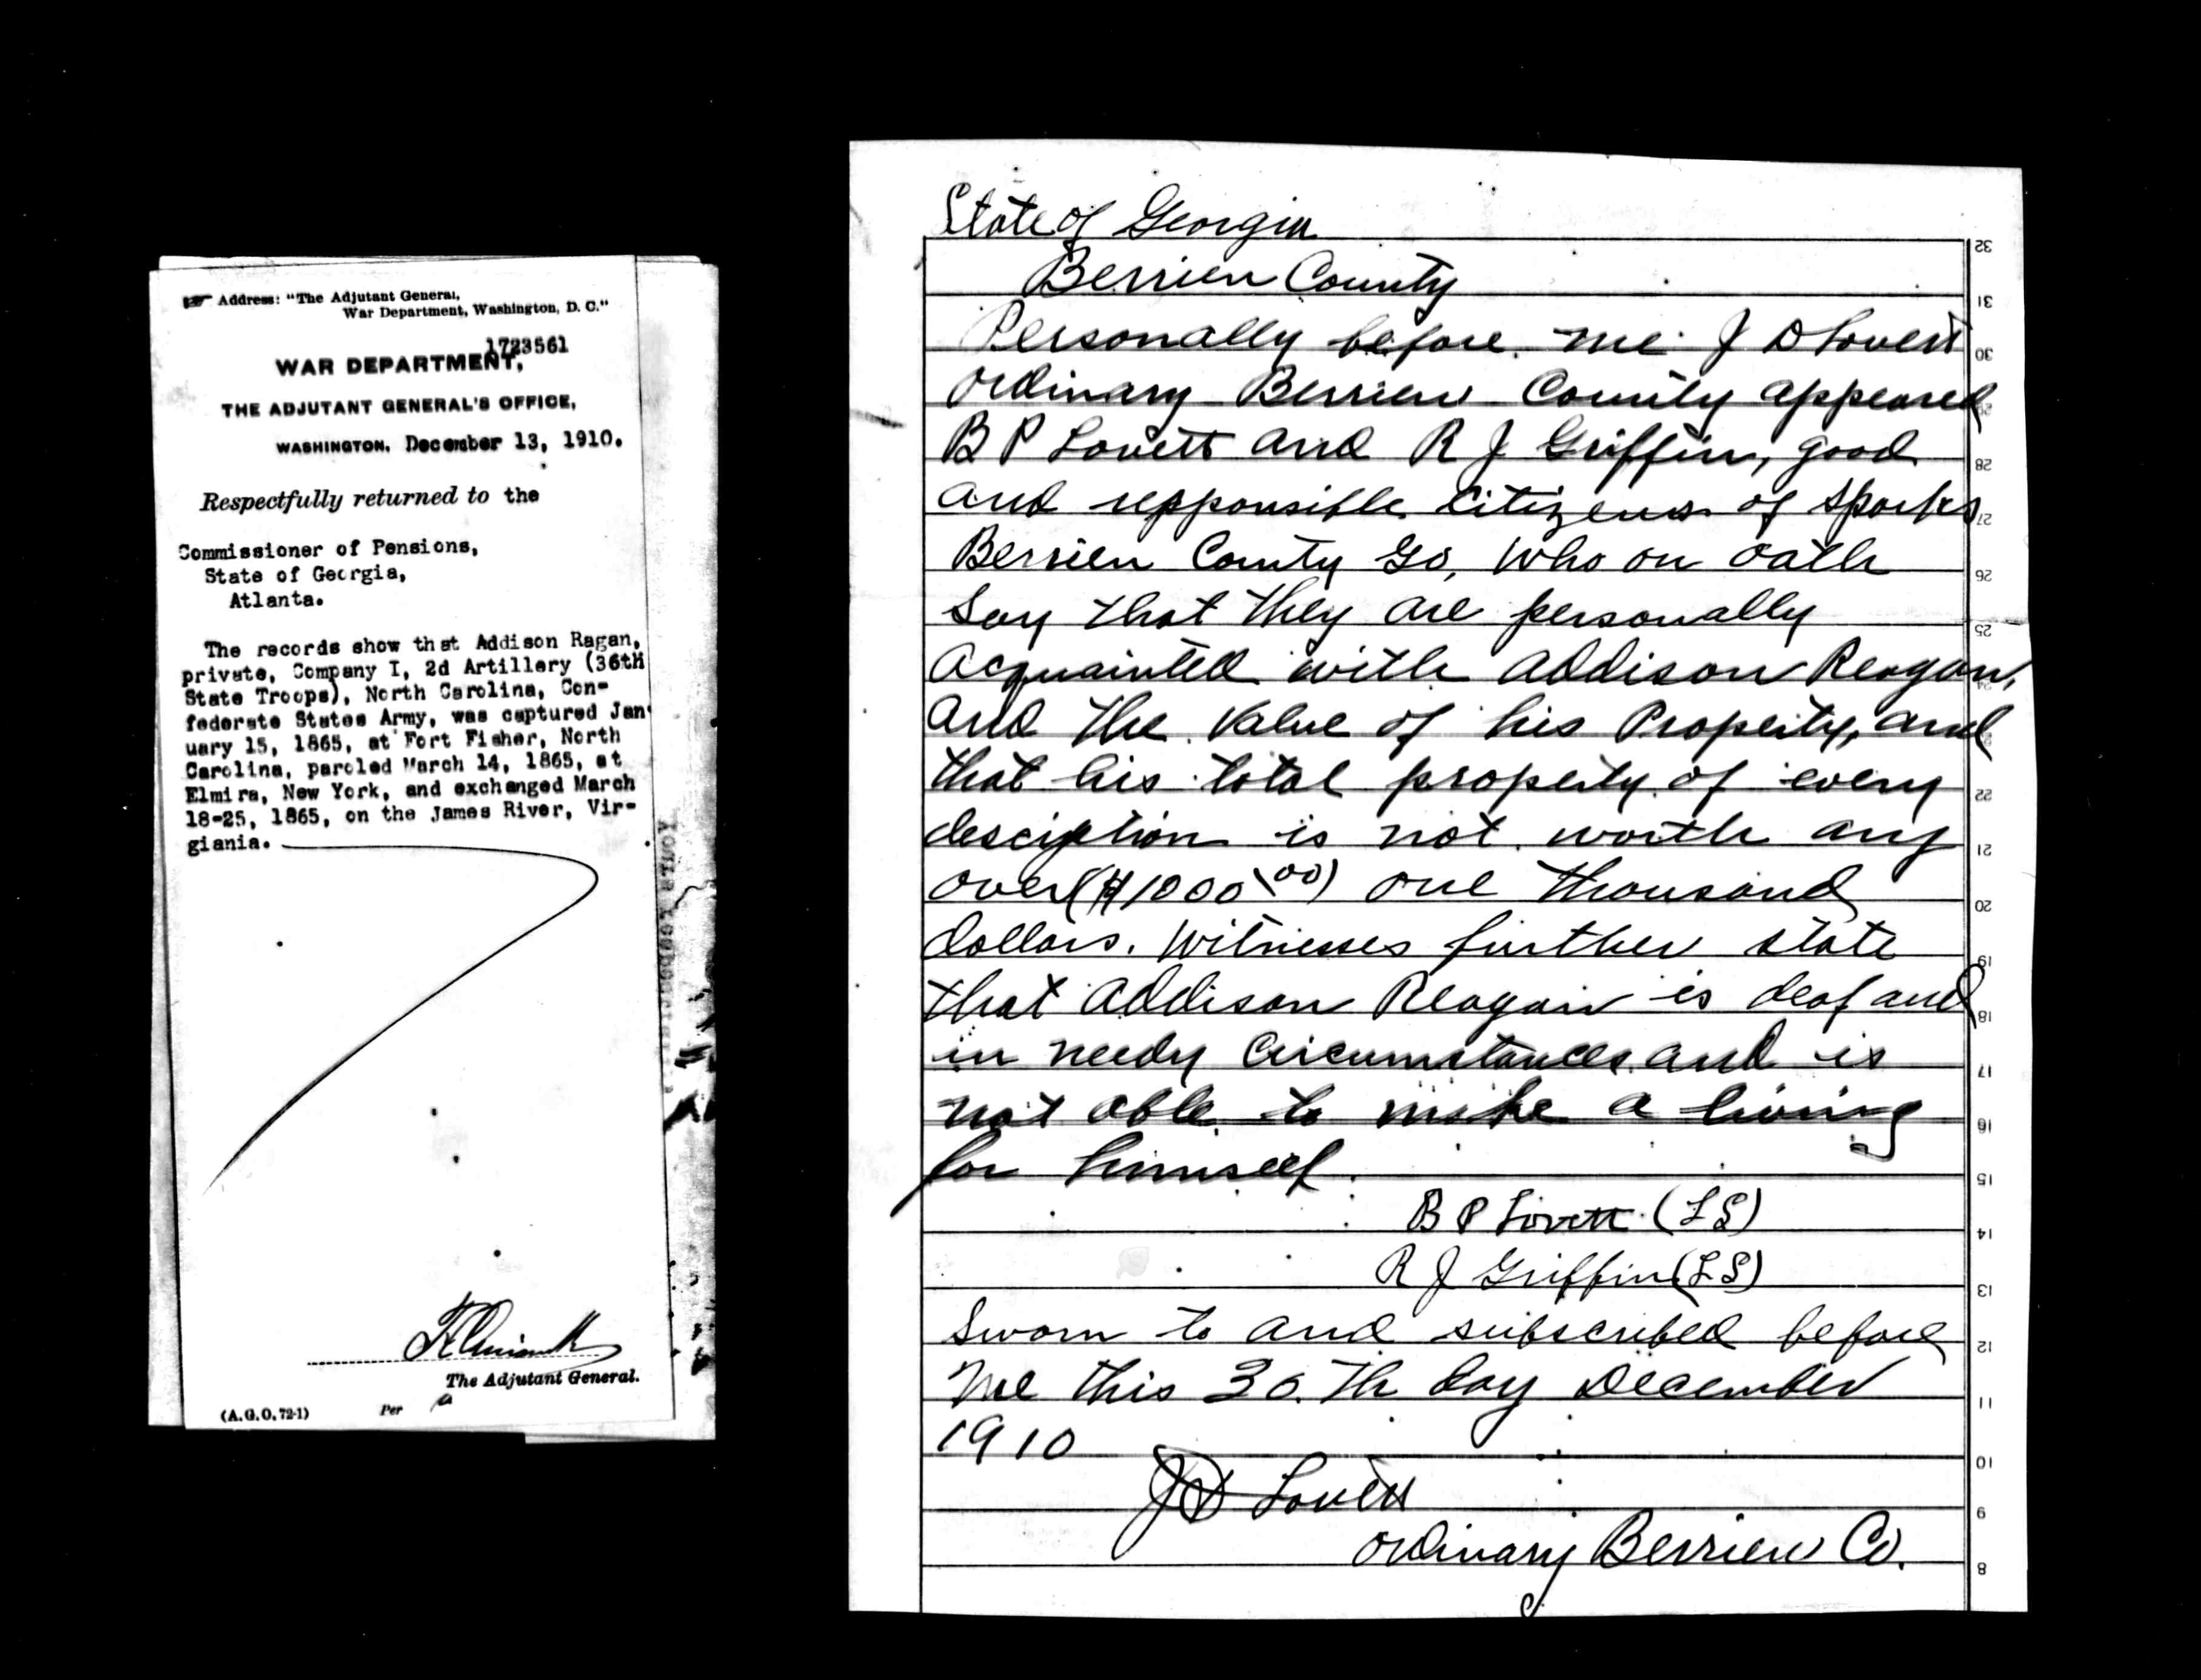 Address: "The Adjutant General,
War Department, Washington, D. C."
1723561
WAR DEPARTMENT,
THE ADJUTANT GENERAL'S OFFICE,
WASHINGTON, December 13, 1910.
Respectfully returned to the
Commissioner of Pensions,
State of Georgia,
Atlanta.
The records show that Addison Ragan,
private, Company I, 2d Artillery (36th
State Troops), North Carolina, Con-
federate States Army, was captured Jan
uary 15, 1865, at Fort Fisher, North
Carolina, paroled March 14, 1865, at
Elmira, New York, and exchanged March
18-25, 1865, on the James River, Vir-
giania.
The Adjutant General.
(A.G.O. 72-1) Per
State of Georgia
Berrien County
Personally before me J D Lovett
Ordinary Berrien County appeared
B P Lovett and R J Griffin, good
and repponsible Citizens of Sparks
Berrien County Ga, Who on oath
Say that they are personally
acquainted with Addison Reagan,
and the Value of his Property, and
that his total property of every
desciption is not worth any
over ($1000.00) one thousand
dollars. Witnesses further state
that Addison Reagan is deaf and
in needy Circumstances and is
not able to make a living
for himself.
B P Lovett (LS)
R J Griffin (LS)
Sworn to and subscribed before
me this 30.th day December
1910
J D Lovett
Ordinary Berrien Co.
32
31
30
29
28
27
26
25
24
23
22
21
20
19
18
17
16
15
14
13
12
11
10
9
8